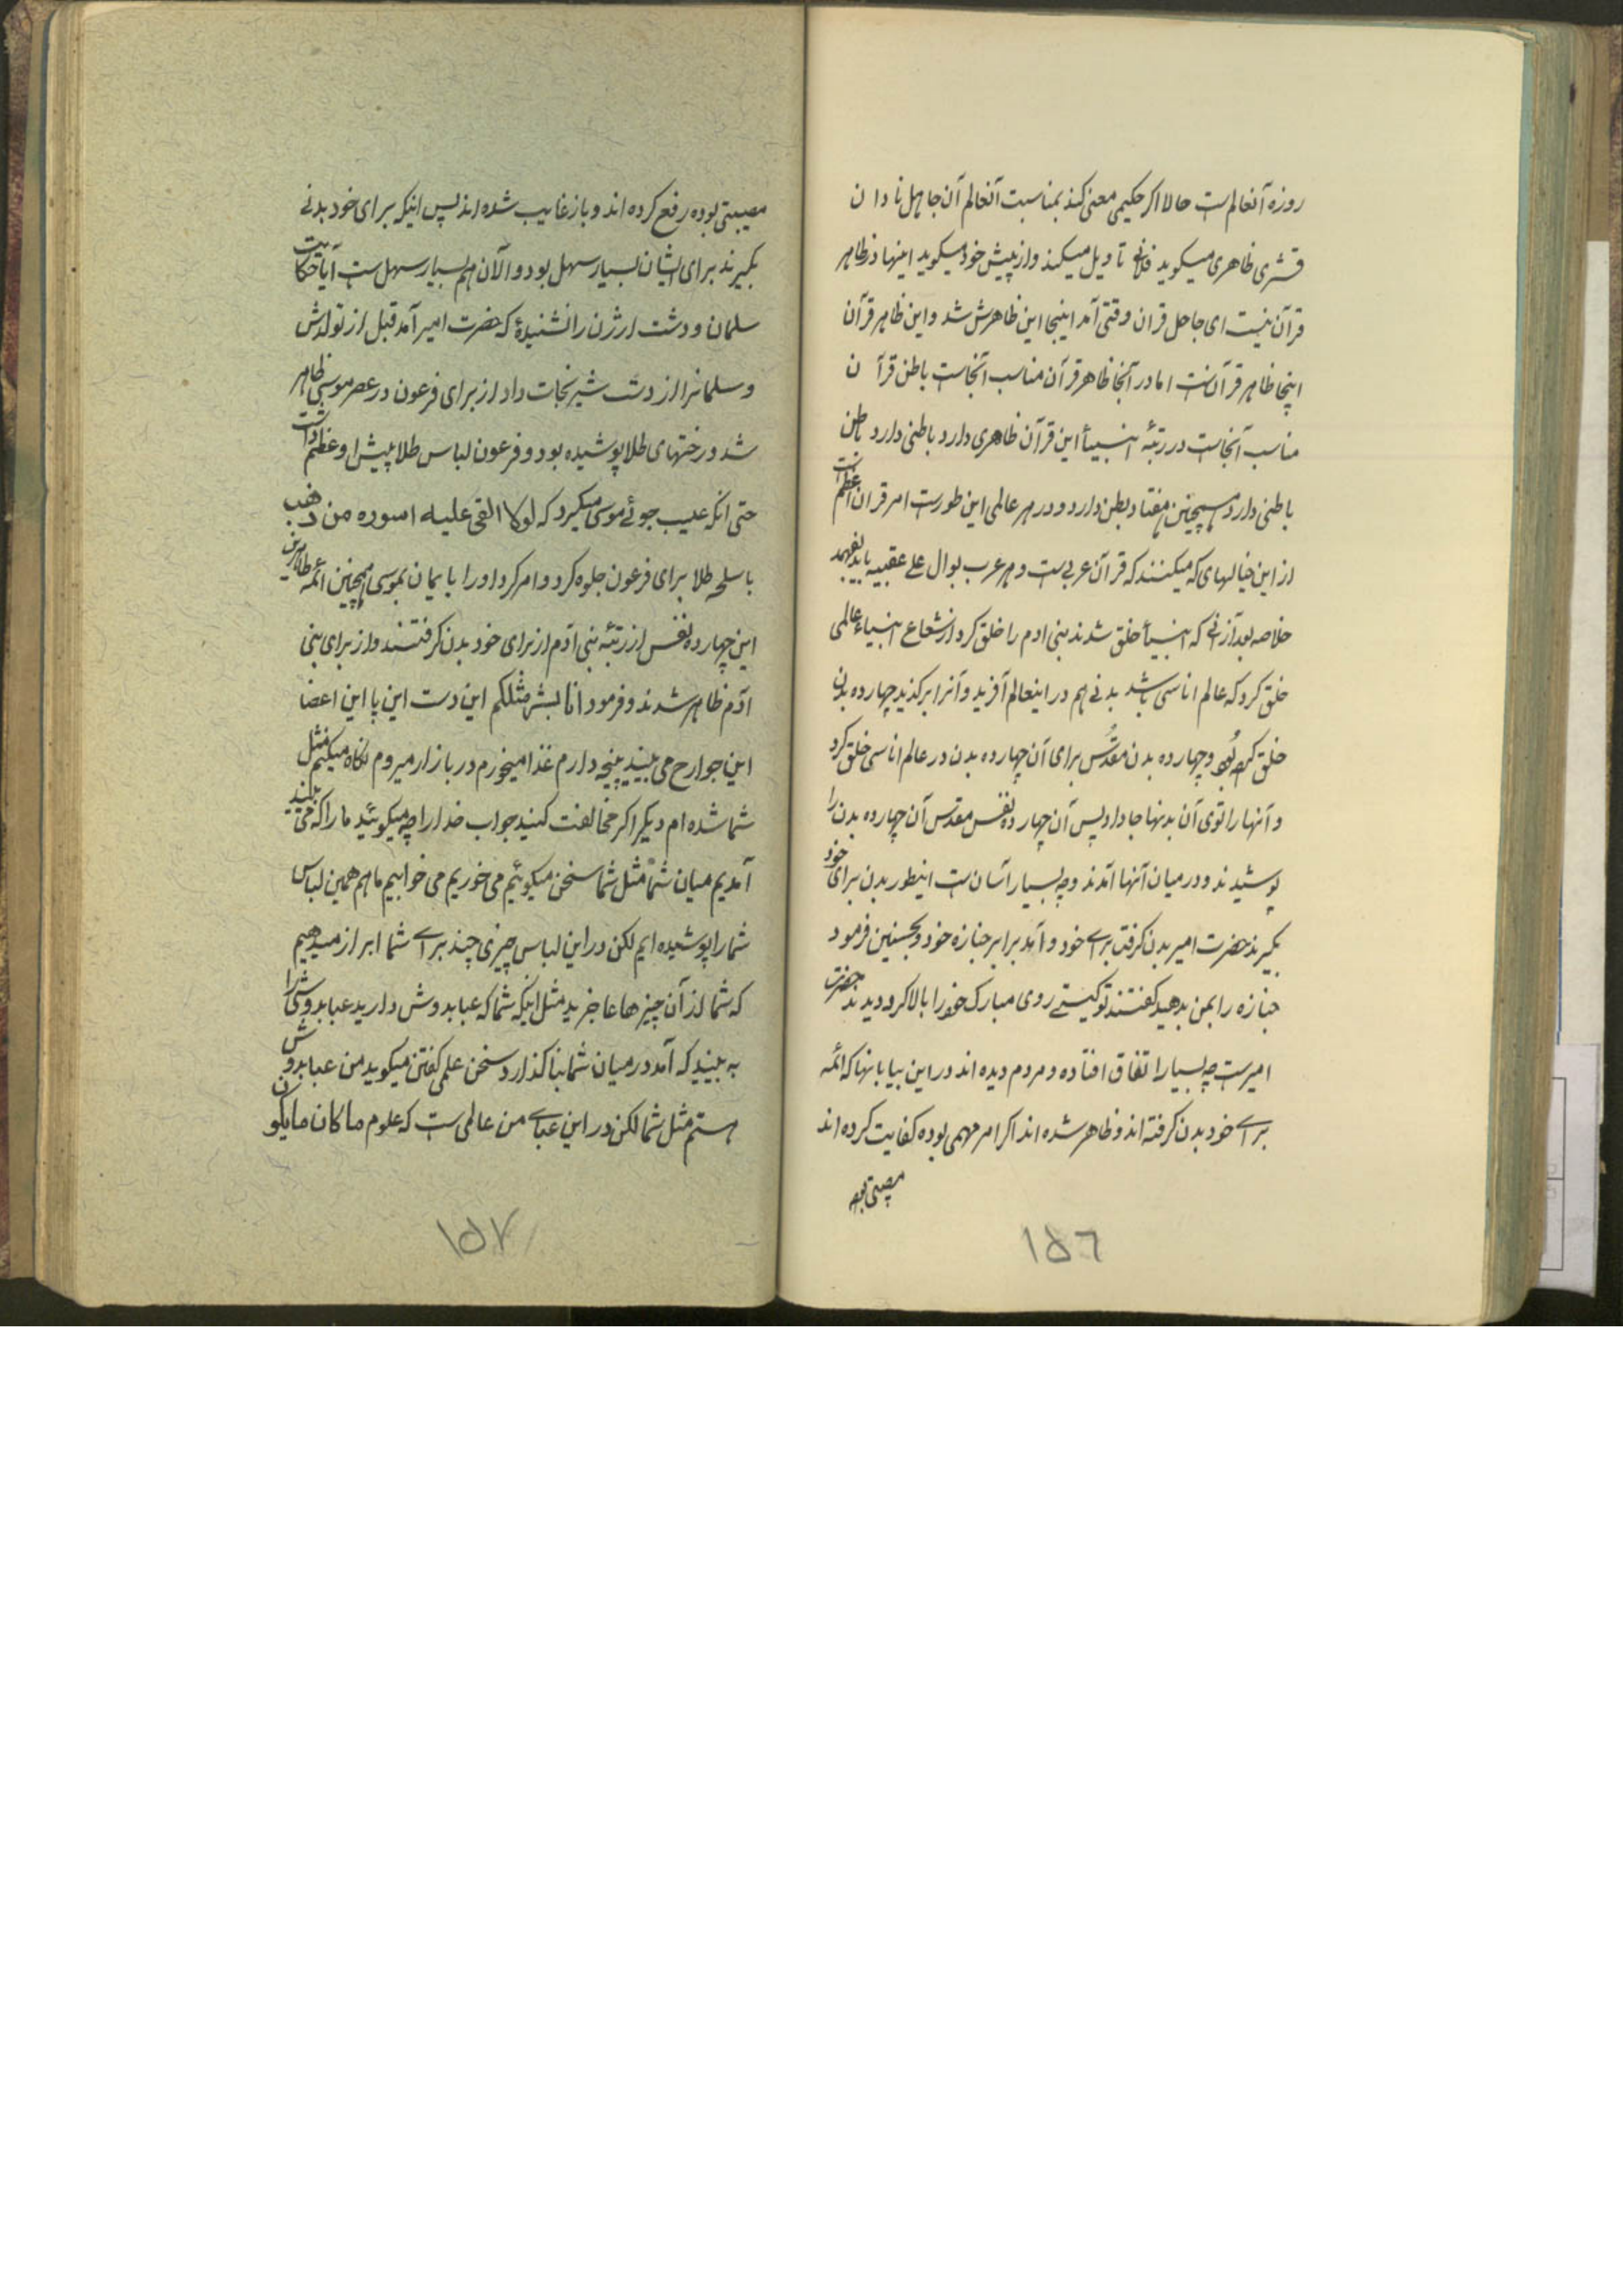 روزه آنعالم است حالا اکر حکیمی معنی کند بمناسبت آنعالم آن جاهل نادان
قشری ظاهری میکوید فلانی تاویل میکند و از پیش خود میکوید اینها در ظاهر
قرآن نیست ای جاهل قران وقتی آمد اینجا این ظاهرش شد و این ظاهر قرآن
اینجا ظاهر قرآن است اما در آنجا ظاهر قرآن مناسب آنجاست باطن قرآن
مناسب آنجاست در رتبهٔ انبیأ این قرآن ظاهری دارد باطنی دارد باطن
باطنی دارد همچنین هفتاد بطن دارد و در هر عالمی این طور است امر قران اعظم است
از این خیالهای که میکنند که قرآن عربی است و هر عرب بوال علی عقبیه باید بفهمد
خلاصه بعد از آنی که انبیأ خلق شدند بنی ادم را خلق کرد از شعاع انبیاء عالمی
خلق کرد که عالم اناسی باشد بدنی هم در اینعالم آفرید و آنرا برکزید چهارده بدن
خلق کرده بود و چهارده بدن مقدس برای آن چهارده بدن در عالم اناسی خلق کرد
و آنها را توی آن بدنها جا داد پس آن چهارده نفس مقدس آن چهارده بدن را
پوشیدند و در میان آنها آمدند و چه بسیار آسان است اینطور بدن برای خود
بکیرند حضرت امیر بدن کرفت برای خود و آمد برابر جنازه خود و بحسنین فرمود
جنازه را بمن بدهید کفتند تو کیستی روی مبارک خود را بالا کرد دیدند حضرت
امیر است چه بسیار اتفاق افتاده و مردم دیده اند در این بیابانها که ائمه
برای خود بدن کرفته اند و ظاهر شده اند اکر امر مهمی بوده کفایت کرده اند
مصیبتی بوده
١٥٦
مصیبتی بوده رفع کرده اند و باز غایب شده اند پس اینکه برای خود بدنی
بکیرند برای ایشان بسیار سهل بود و الآن هم بسیار سهل است آیا حکایت
سلمان و دشت ارژن را نشنیدهٔ که حضرت امیر آمد قبل از تولدش
و سلمانرا از دست شیر نجات داد از برای فرعون در عصر موسی ظاهر
شد و رختهای طلا پوشیده بود و فرعون لباس طلا پیش او عظم داشت
حتی آنکه عیب جوئی موسی میکرد که لولا القی علیه اسوره من ذهب
با سلحه طلا برای فرعون جلوه کرد و امر کرد او را بایمان بموسی همچنین ائمه طاهرین
این چهارده نفس از رتبهٔ بنی آدم از برای خود بدن کرفتند و از برای بنی
آدم ظاهر شدند و فرمود انا بشر مثلکم این دست این پا این اعضا
این جوارح می بینید پنجه دارم غذا میخورم در بازار میروم نکاه میکنم مثل
شما شده ام دیکر اکر مخالفت کنید جواب خدا را چه میکوئید ما را که می بینید
آمدیم میان شما مثل شما سخن میکوئیم می خوریم می خوابیم ما هم همین لباس
شما را پوشیده ایم لکن در این لباس چیزی چند برای شما ابراز میدهیم
که شما از آن چیزها عاجزید مثل اینکه شما که عبا بدوش دارید عبا بدوشی را
به بینید که آمد در میان شما بنا کذارد سخن علمی کفتن میکوید من عبا بدوش
هستم مثل شما لکن در این عبای من عالمی است که علوم ما کان ما یکون
١٥٧